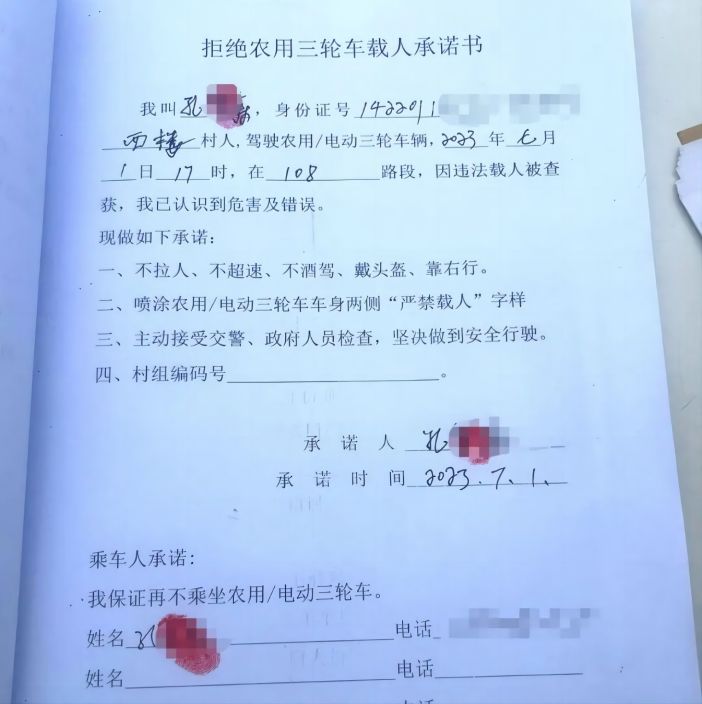 拒绝农用三轮车载人承诺书
我叫孔 森，身份证号 1422011
西楼 村人，驾驶农用/电动三轮车辆，2023 年 七 月
1 日 17 时，在 108 路段，因违法载人被查
获，我已认识到危害及错误。
现做如下承诺：
一、不拉人、不超速、不酒驾、戴头盔、靠右行。
二、喷涂农用/电动三轮车车身两侧“严禁载人”字样
三、主动接受交警、政府人员检查，坚决做到安全行驶。
四、村组编码号 。
承 诺 人 孔
承 诺 时 间 2023.7.1.
乘车人承诺:
我保证再不乘坐农用/电动三轮车。
姓名 电话
姓名 电话